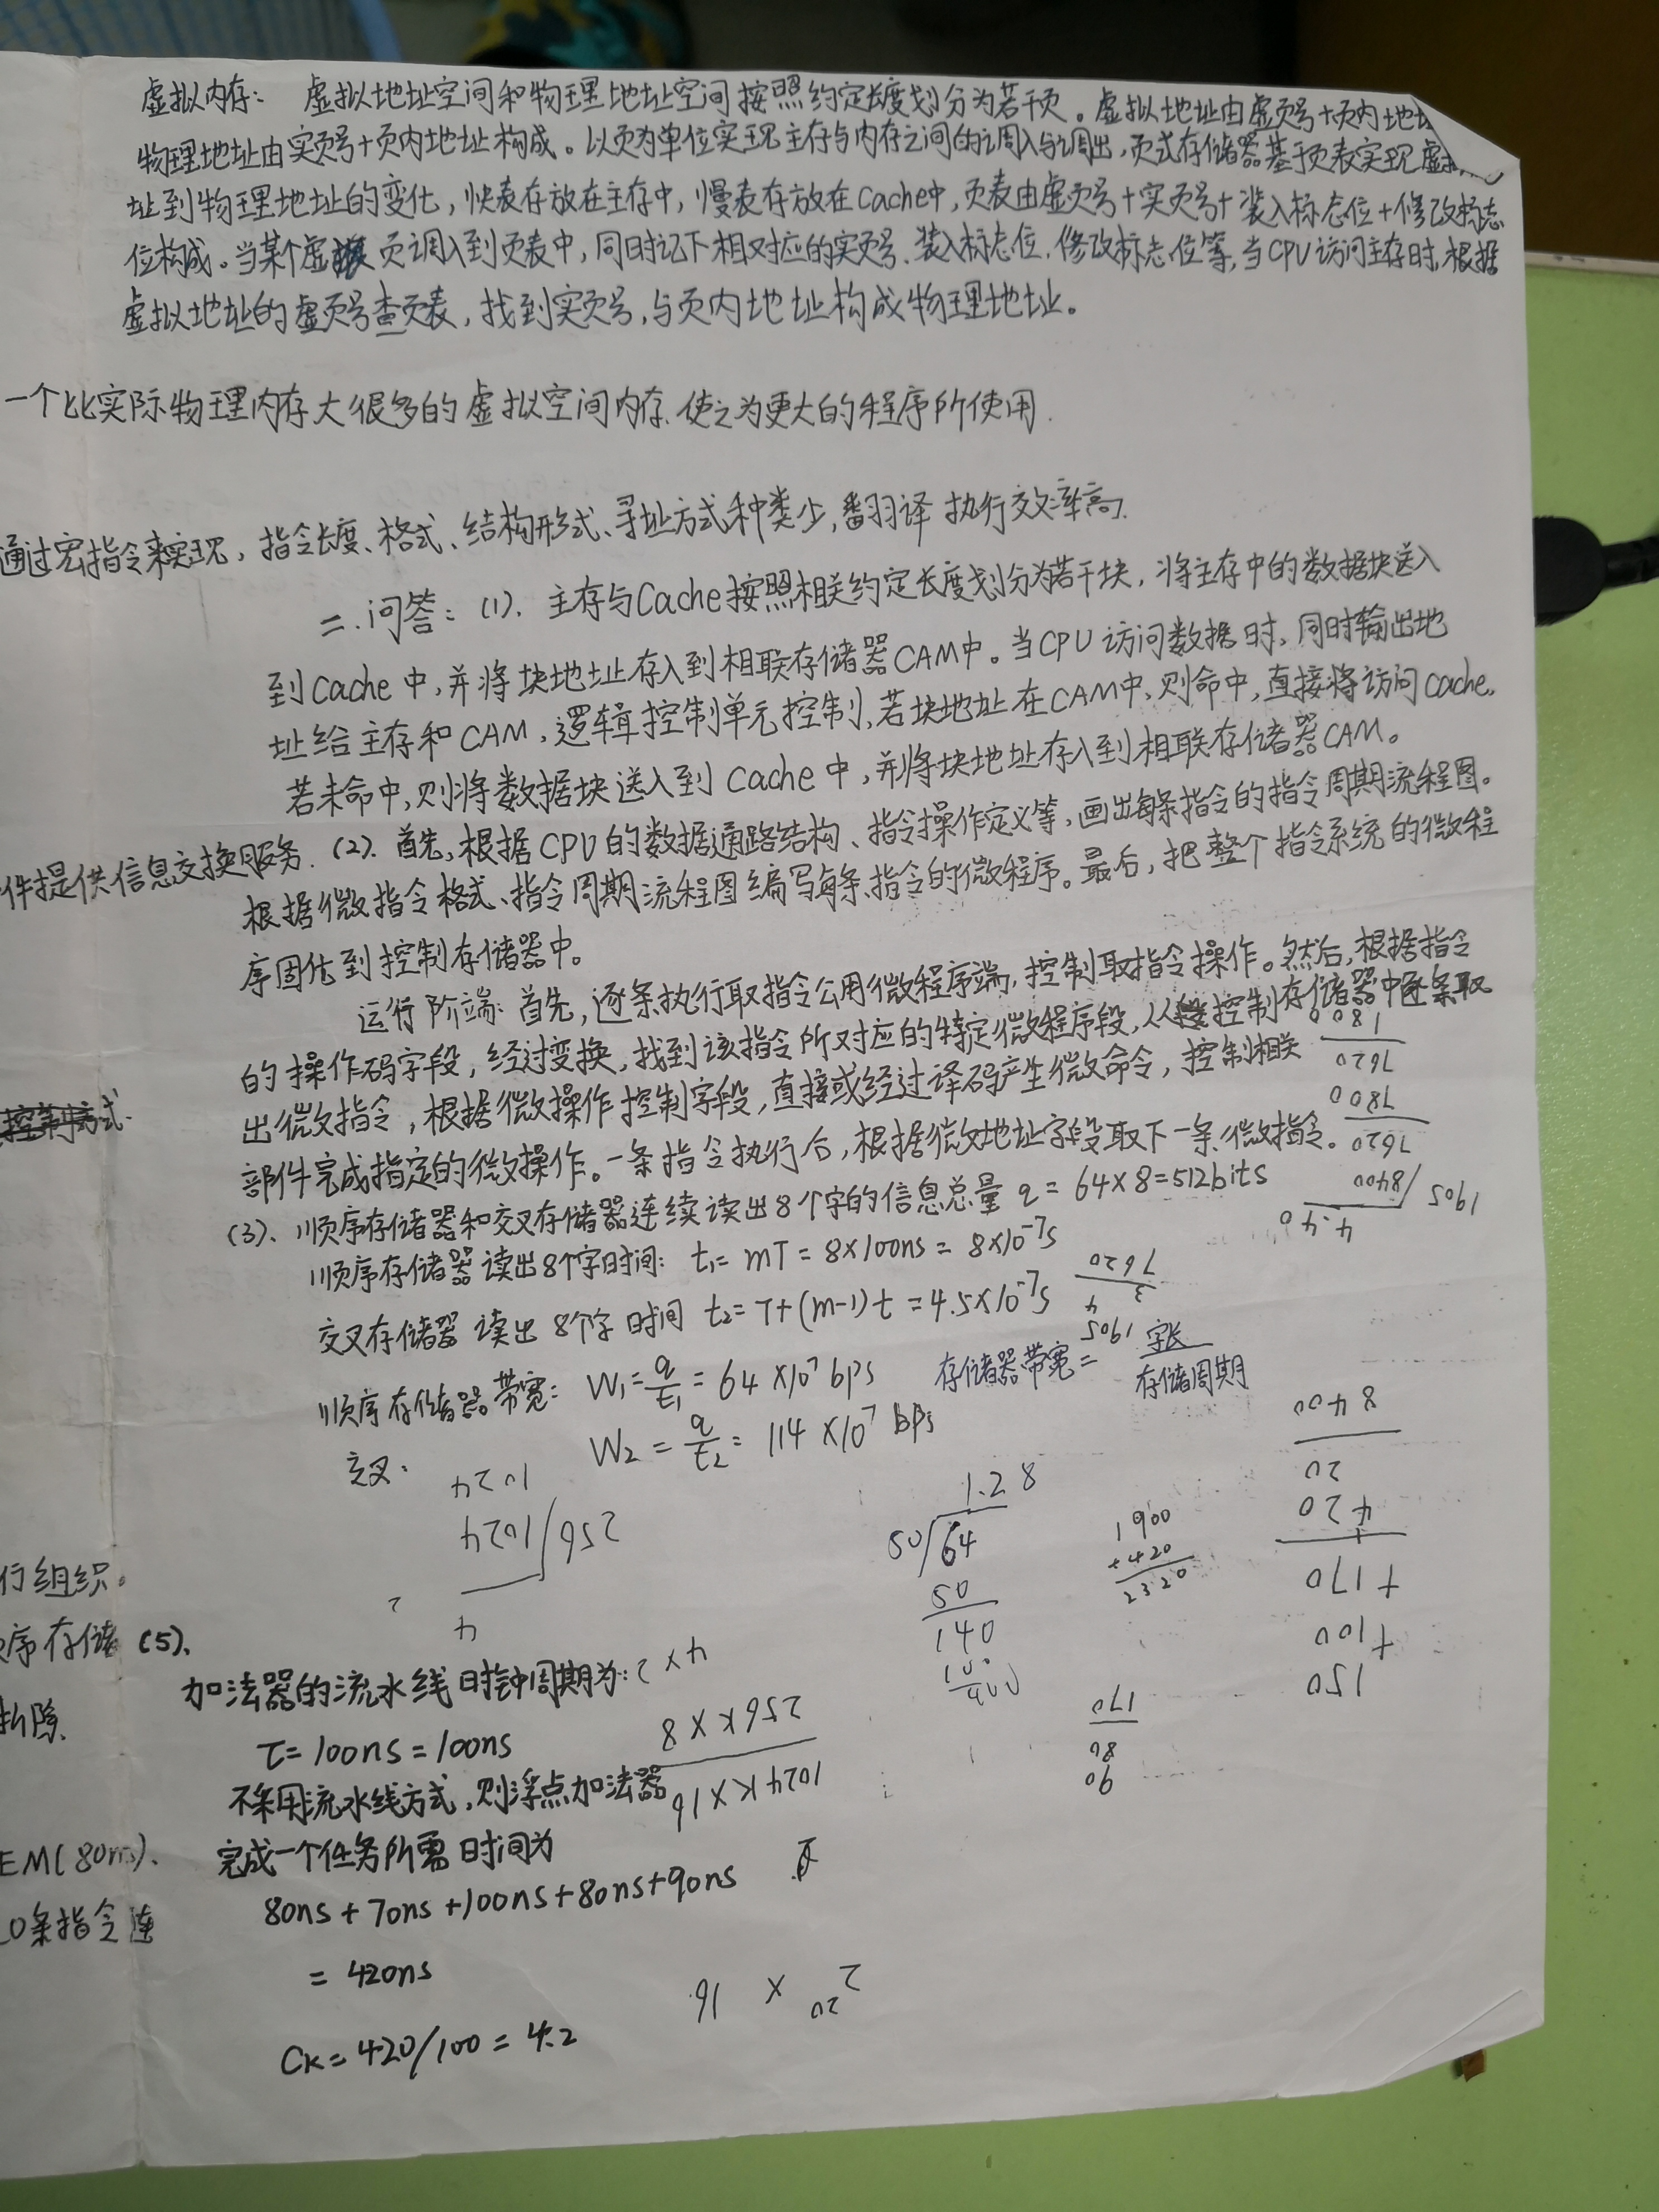 虚拟内存： 虚拟地址空间和物理地址空间按照约定长度划分为若干页。虚拟地址由虚页号+页内地址
物理地址由实页号+页内地址构成。以页为单位实现主存与内存之间的调入与调出，页式存储器基于页表实现虚拟
址到物理地址的变化，快表存放在主存中，慢表存放在Cache中，页表由虚页号+实页号+装入标志位+修改标志
位构成。当某个虚页调入到页表中，同时记下相对应的实页号、装入标志位、修改标志位等，当CPU访问主存时，根据
虚拟地址的虚页号查页表，找到实页号，与页内地址构成物理地址。
一个比实际物理内存大很多的虚拟空间内存，使之为更大的程序所使用.
通过宏指令来实现，指令长度、格式、结构形式、寻址方式种类少，翻译执行效率高.
二.问答：(1). 主存与Cache按照相关约定长度划分为若干块，将主存中的数据块送入
到Cache中，并将块地址存入到相联存储器CAM中。当CPU访问数据时，同时输出地
址给主存和CAM，逻辑控制单元控制，若块地址在CAM中，则命中，直接将访问Cache.
若未命中，则将数据块送入到Cache中，并将块地址存入到相联存储器CAM。
件提供信息交换服务.
(2). 首先，根据CPU的数据通路结构、指令操作定义等，画出每条指令的指令周期流程图。
根据微指令格式、指令周期流程图编写每条指令的微程序。最后，把整个指令系统的微程
序固化到控制存储器中。
运行阶端：首先，逐条执行取指令公用微程序端，控制取指令操作。然后，根据指令
的操作码字段，经过变换，找到该指令所对应的特定微程序段，从控制存储器中逐条取
出微指令，根据微操作控制字段，直接或经过译码产生微命令，控制相关
控制方式.
部件完成指定的微操作。一条指令执行合，根据微地址字段取下一条微指令.
1800
7620
7800
7620
4.40
1905/8400
(3)、顺序存储器和交叉存储器连续读出8个字的信息总量 q = 64×8=512bits
顺序存储器读出8个字时间：t₁= mT = 8×100ns = 8×10⁻⁷s
交叉存储器 读出 8个字 时间 t₂= T+(m-1)t = 4.5×10⁻⁷s
7620
4
1905
顺序存储器带宽： W₁= q/t₁ = 64×10⁷bps
存储器带宽= 字长/存储周期
交叉. W₂ = q/t₂ = 114×10⁷bps
1024
256/1024
4
1.28
50/64
50
140
100
400
1900
+420
2320
8400
20
420
+170
+100
150
170
80
90
行组织。
序存储 (5)、
加法器的流水线时钟周期为：
4×2
τ=100ns=100ns
256K×8
1024K×16
拆除.
不采用流水线方式，则浮点加法器
EM(80ns)、
完成一个任务所需时间为
80ns+70ns+100ns+80ns+90ns
0条指令连
= 420ns
2²⁰ × 16
Ck=420/100 = 4.2